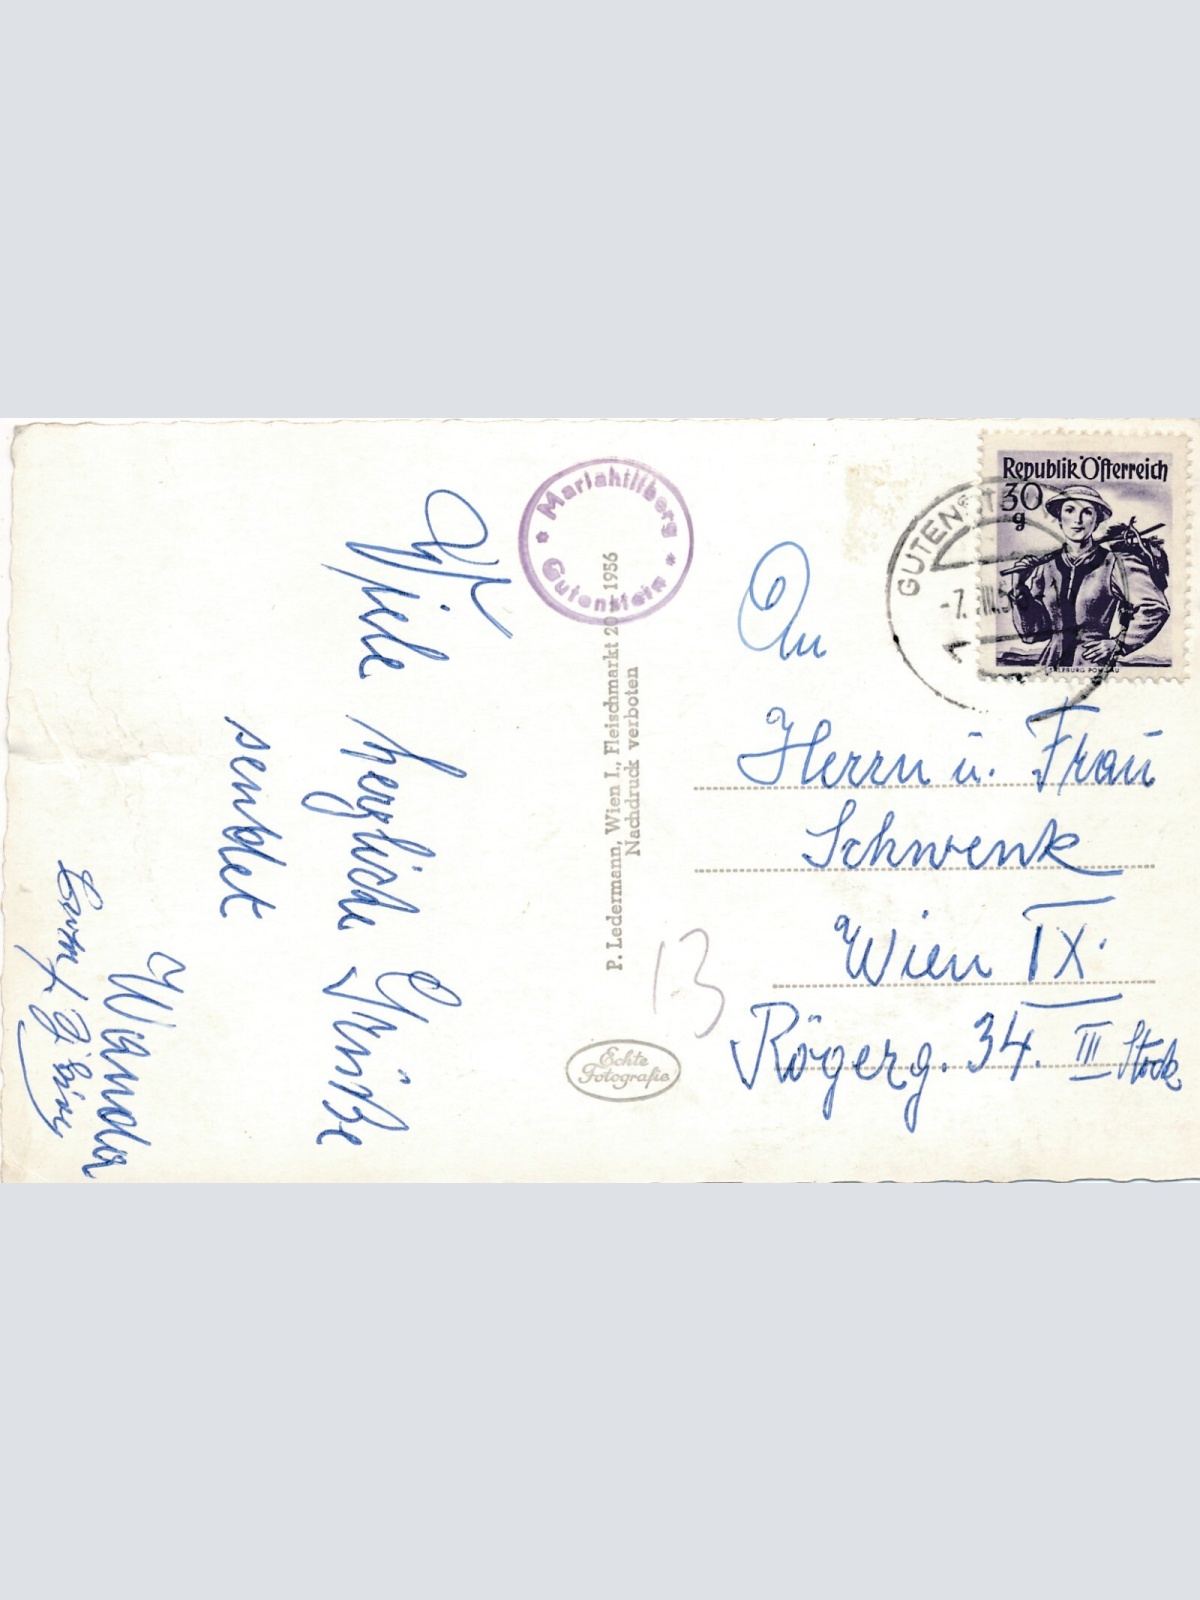 Viele herzliche Grüße
sendet
Wanda
Mariahilfberg
Gutenstein
P. Ledermann, Wien I., Fleischmarkt 20 1956
Nachdruck verboten
Echte
Fotografie
13
Republik Österreich
30
g
SALZBURG PONGAU
GUTENST
-7.
An
Herrn u. Frau
Schwenk
Wien IX.
Rögerg. 34. III Stock